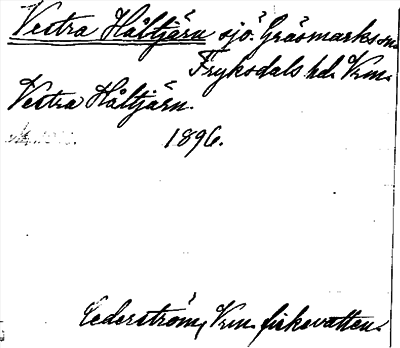 Vestra Håltjärn sjö. Gräsmarks sn.
Fryksdals hd. Vrm.
Vestra Håltjärn.
1896.
Cederström, Vrm. fiskevatten.